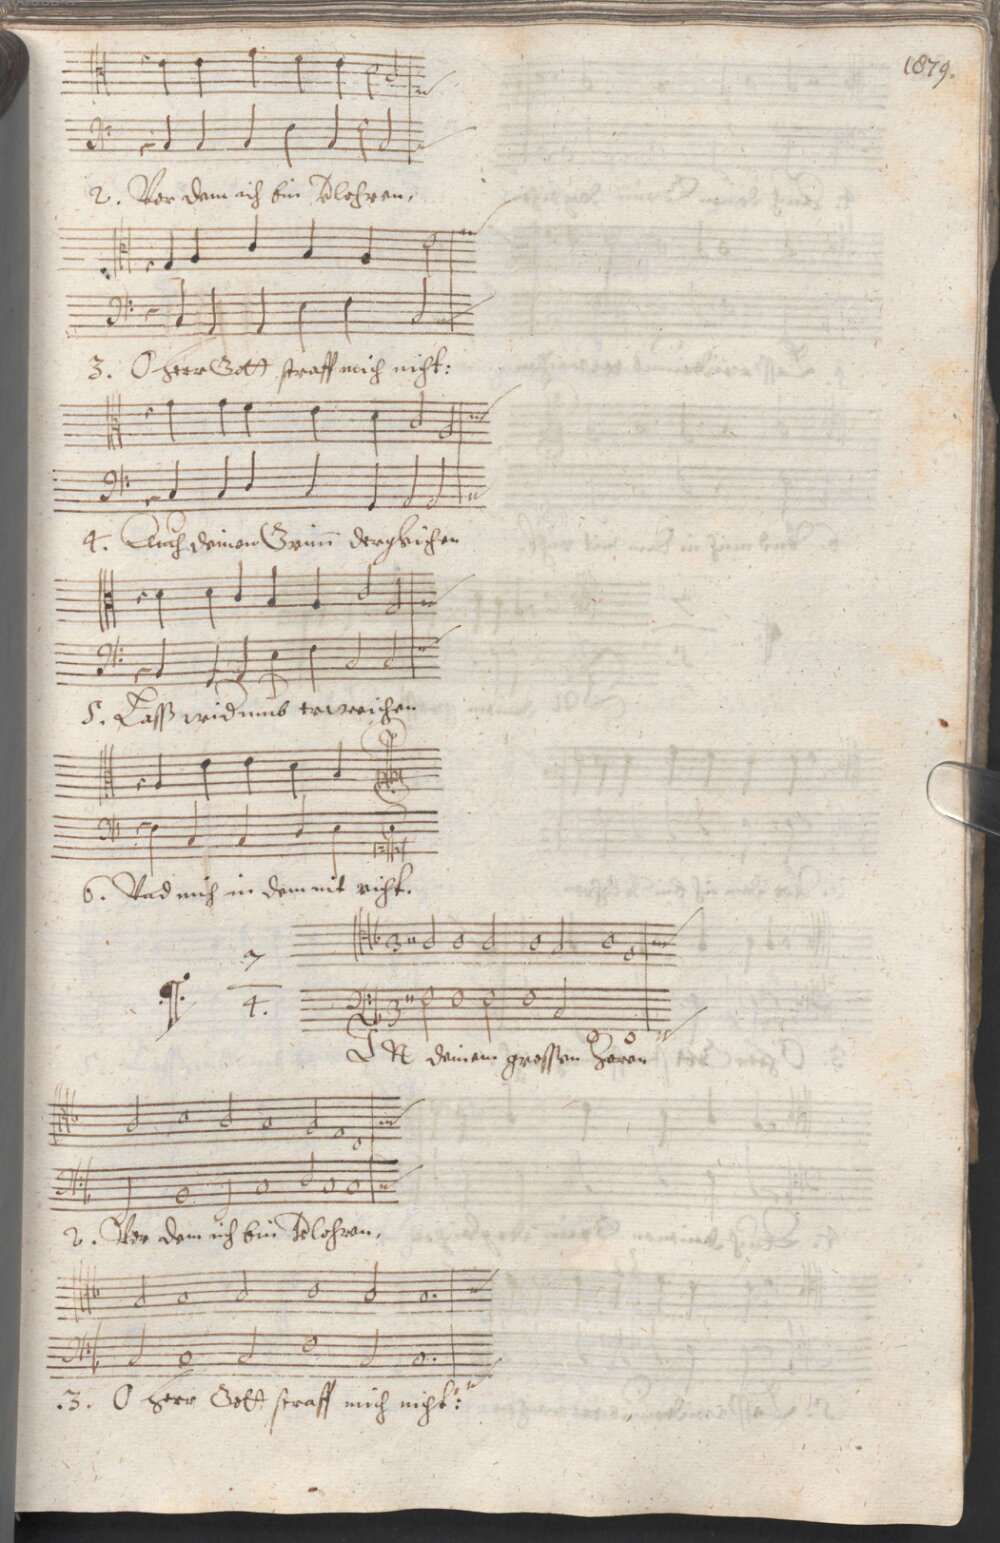 1879.
2. Vor dem ich bin Verlohren,
3. O herr Gott straff mich nicht:
4. Auch deinen Grimm dergleichen
5. Lass widrumb erweichen
6. Und mich in dem nit richt.
7
4.
IN deinem grossen Zoren
2. Vor dem ich bin Verlohren,
.3. O herr Gott straff mich nicht: